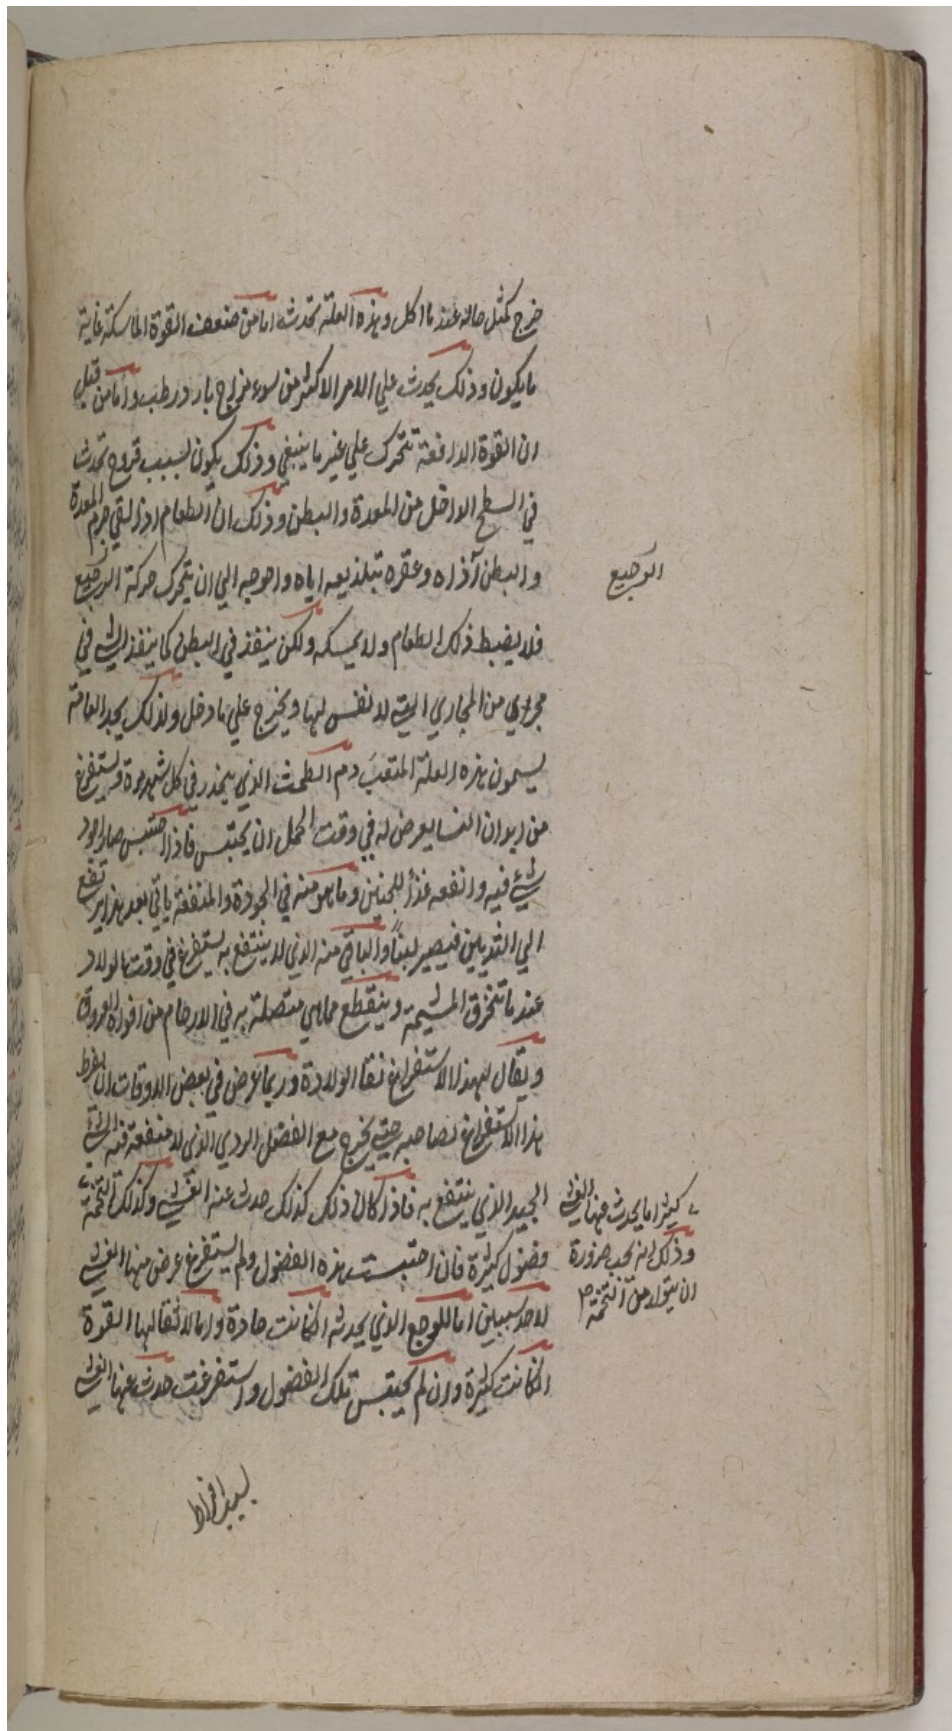 خرج كمثل حاله عند ما اكل وهذه العلة تحدث اما من ضعف القوة الماسكة غاية
ما يكون وذلك يحدث علي الامر الاكثر من سوء مزاج بارد رطب واما من قبل
ان القوة الدافعة تتحرك علي غير ما ينبغي وذلك يكون بسبب قروح تحدث
في السطح الداخل من المعدة والبطن وذلك ان الطعام اذا لقي جرم المعدة
والبطن آذاه وعقره بتلذيعه اياه واحوجه الي ان يتحرك حركة الوجيع
الوجيع
فلا يضبط ذلك الطعام ولا يمسكه ولكن ينفذ في البطن كما ينفذ الشي في
مجري من المجاري التي لا نفس لها ويخرج علي ما دخل ولذلك يجد العامة
يسمون هذه العلة دم الطمث الذي ينحدر في كل شهر مرة ويستفرغ
من ابدان النسا يعرض له في وقت الحمل ان يحتبس فاذا احتبس صار اجود
شيء فيه وانفعه غذأ للجنين وما هو منه في الجودة والمنفعة ياتي بعد هذا يرتفع
الي الثديين فيصير لبناً والباقي منه الذي لا ينتفع به يستفرغ في وقت الولاد
عند ما تنخرق المشيمة وينقطع مما هي متصلة به في الارحام من افواه العروق
ويقال لهذا الاستفراغ نقا الولادة وربما عرض في بعض الاوقات ان يفرط
هذا الاستفراغ لصاحبه حتي يخرج مع الفضول الردي الذي لا منفعة فيه الشي
الجيد الذي ينتفع به فاذا كان ذلك كذلك حدث عنه الغشي وكذلك التخمة
كثيرا ما يحدث عنها الغشي
وذلك انه يجب ضرورة
ان يتولد من التخمة
فضول كثيرة فان احتبست هذه الفضول ولم يستفرغ عرض منها الغشي
لاحد سببين اما للوجع الذي يحدثه ان كانت حادة واما لاثقالها القوة
ان كانت كثيرة وان لم يحتبس تلك الفضول واستفرغت حدث عنها الغشي
لسبب افراط